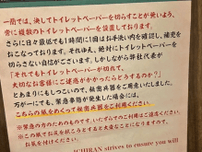 一蘭では、決してトイレットペーパーを切らすことが無いよう、
常に複数のトイレットペーパーを設置しております。
さらに日々最低でも1時間に1回はお手洗い内を確認し、補充を
おこなっております。それゆえ、絶対にトイレットペーパーを
切らさない自信がございます。しかしながら弊社代表が
「それでもトイレットペーパーが切れて、
大切なお客様にご迷惑がかかったらどうするのか？」
とあまりにもしつこいので、秘密兵器をご用意いたしました。
万が一にでも、緊急事態が発生した場合には、
こちらの紙をめくって秘密兵器をご利用ください。
※緊急の方のためのものです。いたずらでのご利用はご遠慮ください。
ICHIRAN strives to ensure you will